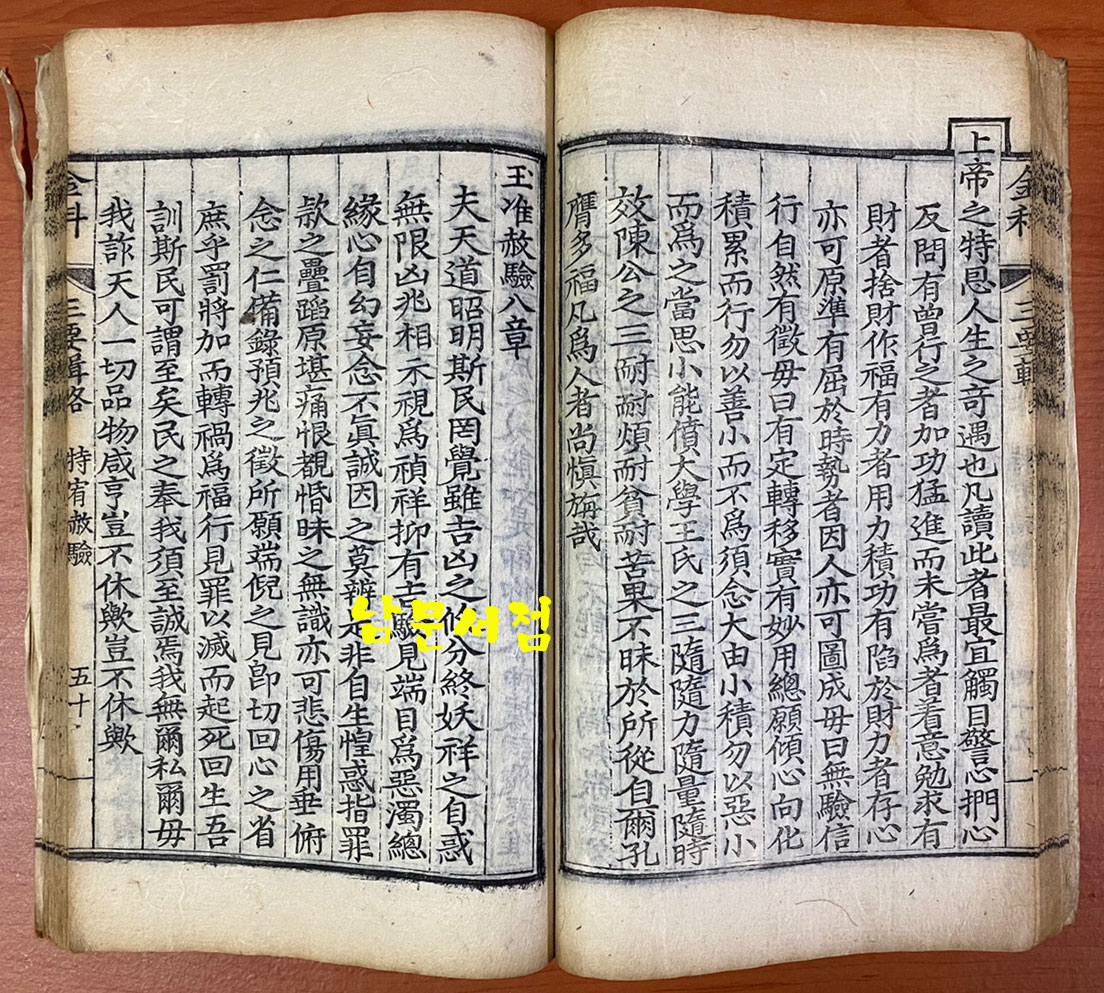 上帝之特恩人生之奇遇也凡讀此者最宜觸目警心捫心
反問有曾行之者加功猛進而未嘗爲者着意勉求有
財者捨財作福有力者用力積功有陷於財力者存心
亦可原準有屈於時勢者因人亦可圖成毋曰無驗信
行自然有徵毋曰有定轉移實有妙用總願傾心向化
積累而行勿以善小而不爲須念大由小積勿以惡小
而爲之當思小能僨大學王氏之三隨隨力隨量隨時
效陳公之三耐耐煩耐貧耐苦果不昧於所從自爾孔
膺多福凡爲人者尚愼旃哉
玉准赦驗八章
夫天道昭明斯民罔覺雖吉凶之攸分終妖祥之自惑
無限凶兆相示視爲禎祥抑有吉驗見端目爲惡濁總
緣心自幻妄念不眞誠因之莫辨是非自生惶惑指罪
款之疊蹈原堪痛恨覩惛昧之無識亦可悲傷用垂俯
念之仁備錄預兆之徵所願端倪之見卽切回心之省
庶乎罰將加而轉禍爲福行見罪以滅而起死回生吾
訓斯民可謂至矣民之奉我須至誠焉我無爾私爾毋
我詐天人一切品物咸亨豈不休歟豈不休歟
金科
三要輯略
特宥赦驗
五十
남문서점